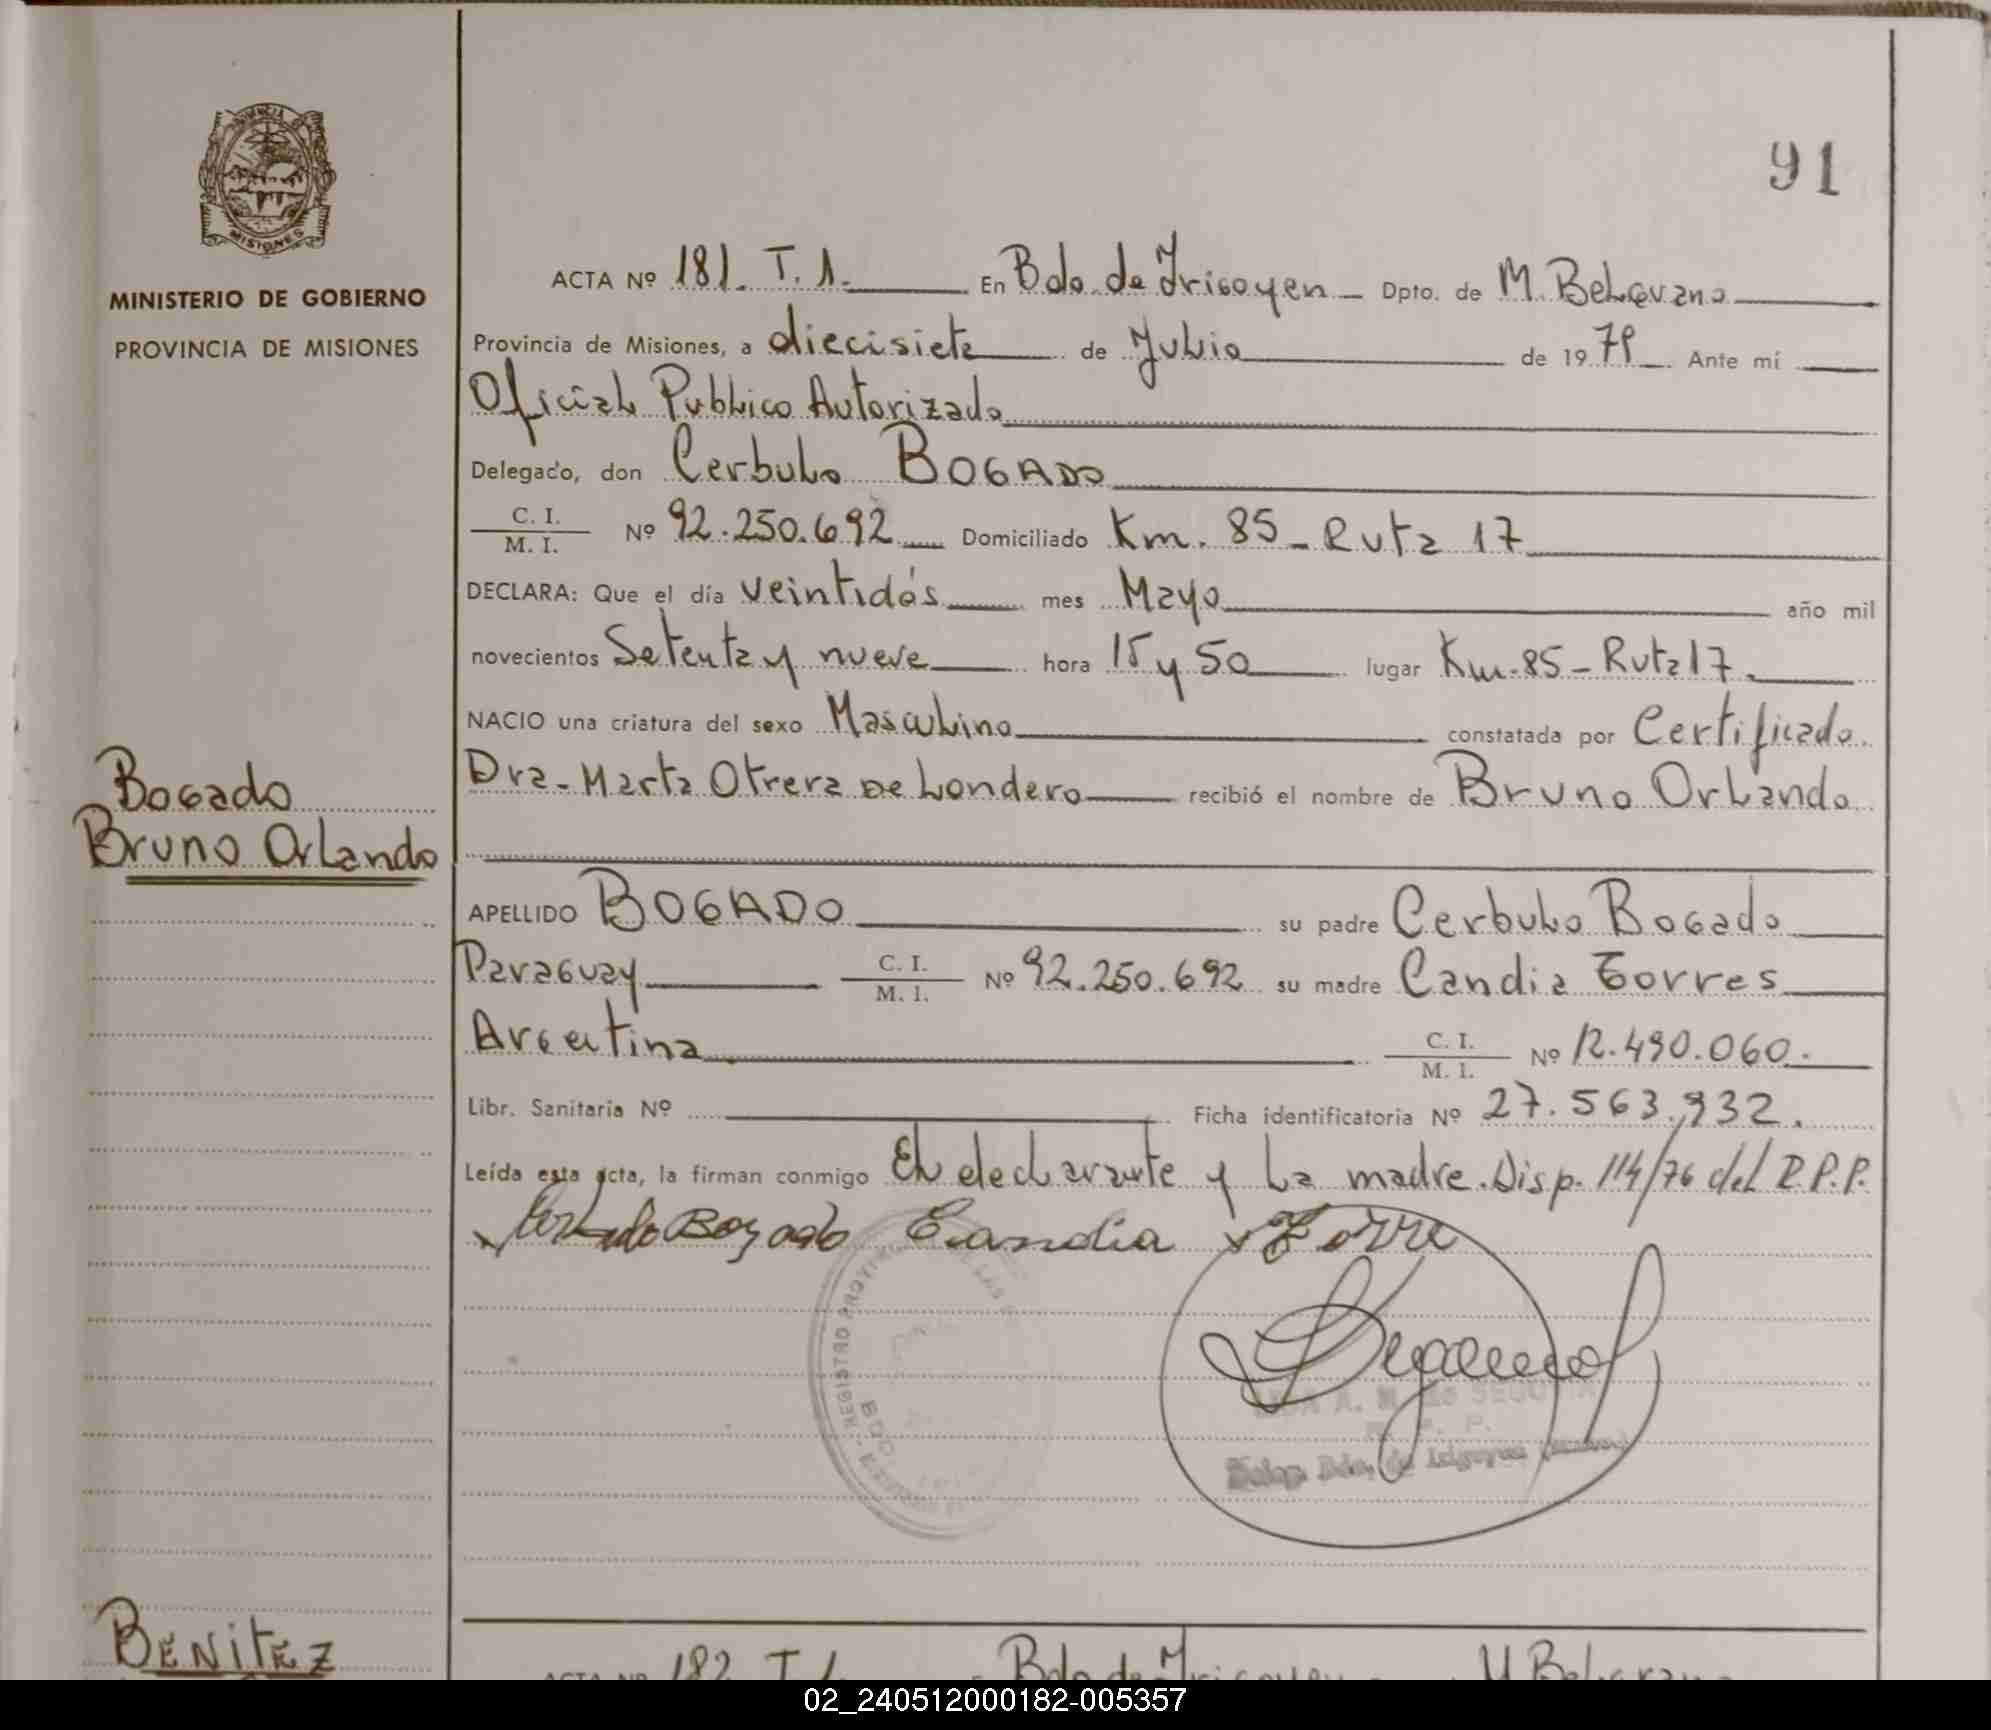 91
MISIONES
MINISTERIO DE GOBIERNO
PROVINCIA DE MISIONES
ACTA Nº 181. T. 1. En Bdo. de Irigoyen Dpto. de M. Belgrano
Provincia de Misiones, a diecisiete de Julio de 1979 Ante mí
Oficial Publico Autorizado
Delegado, don Cerbulo BOGADO
C. I.
M. I. Nº 92.250.692 Domiciliado Km. 85 - Ruta 17
DECLARA: Que el día veintidós mes Mayo año mil
novecientos Setenta y nueve hora 15 y 50 lugar Km. 85 - Ruta 17.
NACIO una criatura del sexo Masculino constatada por Certificado
Dra. Marta Otrera DE Londero recibió el nombre de Bruno Orlando
Bogado
Bruno Orlando
APELLIDO BOGADO su padre Cerbulo Bogado
Paraguay C. I. M. I. Nº 92.250.692 su madre Candia Torres
Argentina C. I. M. I. Nº 12.490.060.
Libr. Sanitaria Nº Ficha identificatoria Nº 27.563.932.
Leída esta acta, la firman conmigo El declarante y La madre. Disp. 114/76 del R.P.P.
Bogado Candia Torre
REGISTRO
BENITEZ
ACTA Nº 182 T 1. Bdo de Irigoyen M Belgrano
02_240512000182-005357